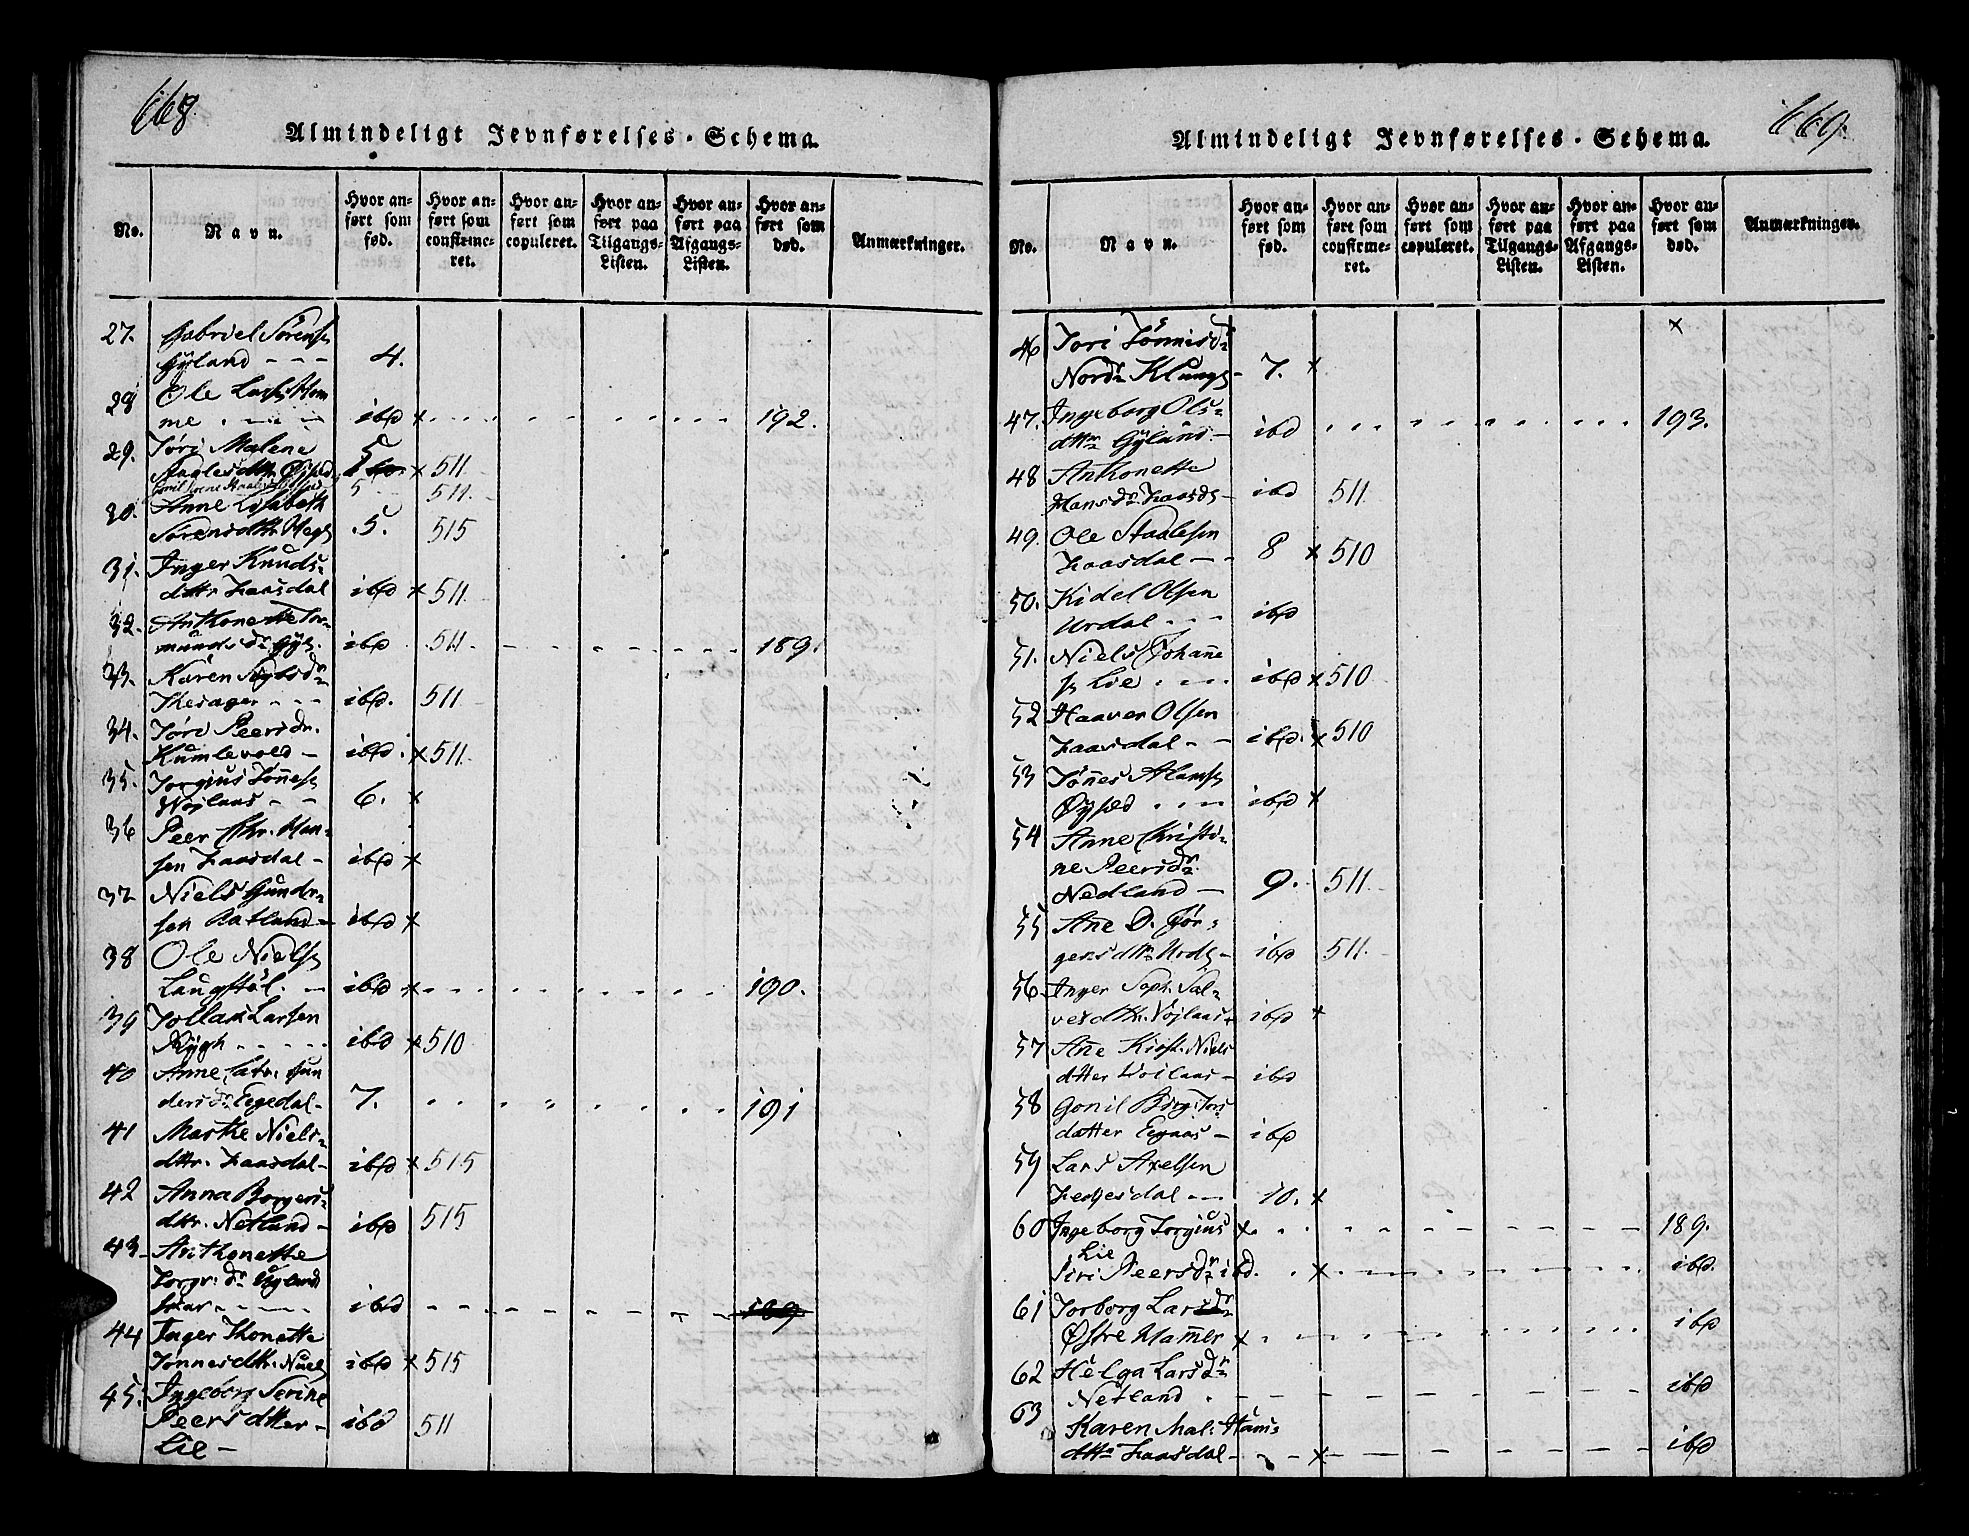 668.
Almindeligt Jevnførelses-Schema.
No. Navn. Hvor anført som fød. Hvor anført som confirmeret. Hvor anført som copuleret. Hvor anført paa Tilgangs-Listen. Hvor anført paa Afgangs-Listen. Hvor anført som død. Anmærkninger.
27. Gabriel Sörens
Gÿland - - - 4.
28 Ole Lars Hom
me . - - - ibd x . . . . 192.
29. Töri Malene 5
dttr Øysæd x 511.
5 511.
30. Anne Lisabeth
Sörensdttr 5. 515
31. Inger Knuds-
dttr Faasdal ibd x 511.
32. Anthonette Tor-
munds dr Gÿl. ibd 511. - - - - 189.
33. Karen dr
ibd. 511
34. Töri Peers dr.
Kumlevold - ibd. x 511.
35. Torgius Tönes
Nöjlaas - - 6. x
36 Peer Chr. Han-
sen Faasdal - ibd x
37 Niels Gunder-
sen - ibd x
38 Ole Niels
Laugstöl. - ibd x . . . . 190.
39 Tollak Larsen
Rÿgh . . . . ibd x 510
40 Anne Catr. Gun
dersdr Egedal - 7. . . . . 191
41 Marthe Niels-
dttr. Faasdal - ibd x 515
42 Anna Borgers-
dttr. Netland - ibd 515
43. Anthonette
Torgr. dr Ugland
- - - ibd - - - - 189
44 Inger Thonette
Tönnesdttr. ibd x 515
45. Ingeborg Serine
Peersdtter - ibd 511
Lie -
669.
Almindeligt Jevnførelses-Schema.
No. Navn. Hvor anført som fød. Hvor anført som confirmeret. Hvor anført som copuleret. Hvor anført paa Tilgangs-Listen. Hvor anført paa Afgangs-Listen. Hvor anført som død. Anmærkninger.
46 Tori Tönnisdr x
Nordr - 7. x
47. Ingeborg Ols-
dttr Gÿland - ibd . . . . 193.
48 Anthonette
Hansdr. Faasd - ibd 511.
49. Ole Staalesen
Faasdal - - 8 x 510
50. Kidel Olsen
Urdal - - - ibd
51. Niels Johanne
s Lie . - - ibd x 510
52 Haaver Olsen
Faasdal - - ibd. x 510
53 Tönes
Øysæd . - - ibd x
54 Anne Christi-
ne Peersdr.
Nedland - 9. 511.
55 Ane D. Jör-
gensdttr - ibd 511.
56. Inger Soph. Sal-
vesdttr. Nöjlaas ibd x
57 Ane Kirst. Niels
dtter - ibd
58 Gonil Birg.
datter Egaas - ibd
59 Lars Axelsen
- - 10. x
60 Ingeborg Torgius x . . . . 189.
Lie
Siri Peersdr ibd. . x . - - - ibd.
61 Torborg Larsdr
Østre x . . . . ibd
62 Helga Larsdr
Netland . - - - - ibd
63 Karen Mal: Hans
dttr Faasdal - - x - - - ibd